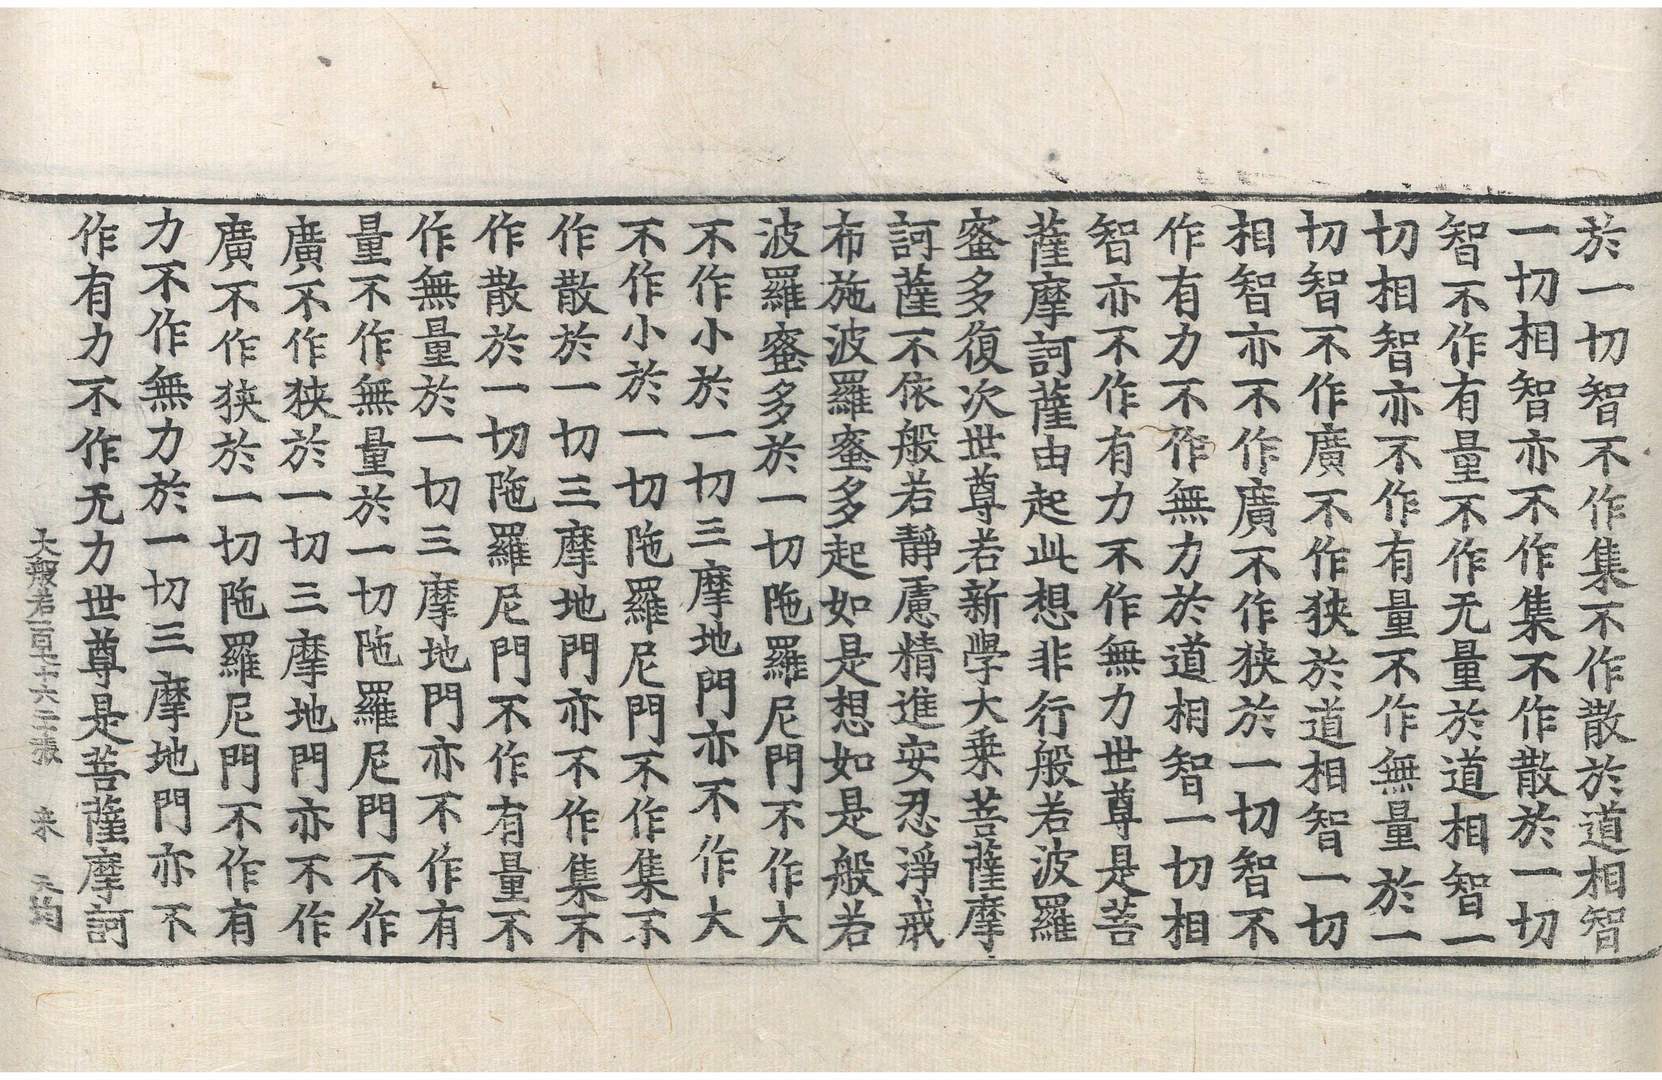 於一切智不作集不作散於道相智
一切相智亦不作集不作散於一切
智不作有量不作无量於道相智一
切相智亦不作有量不作無量於一
切智不作廣不作狹於道相智一切
相智亦不作廣不作狹於一切智不
作有力不作無力於道相智一切相
智亦不作有力不作無力世尊是菩
薩摩訶薩由起此想非行般若波羅
蜜多復次世尊若新學大乘菩薩摩
訶薩不依般若靜慮精進安忍淨戒
布施波羅蜜多起如是想如是般若
波羅蜜多於一切陁羅尼門不作大
不作小於一切三摩地門亦不作大
不作小於一切陁羅尼門不作集不
作散於一切三摩地門亦不作集不
作散於一切陁羅尼門不作有量不
作無量於一切三摩地門亦不作有
量不作無量於一切陁羅尼門不作
廣不作狹於一切三摩地門亦不作
廣不作狹於一切陁羅尼門不作有
力不作無力於一切三摩地門亦不
作有力不作无力世尊是菩薩摩訶
大般若一百七十六 二張 来 天均